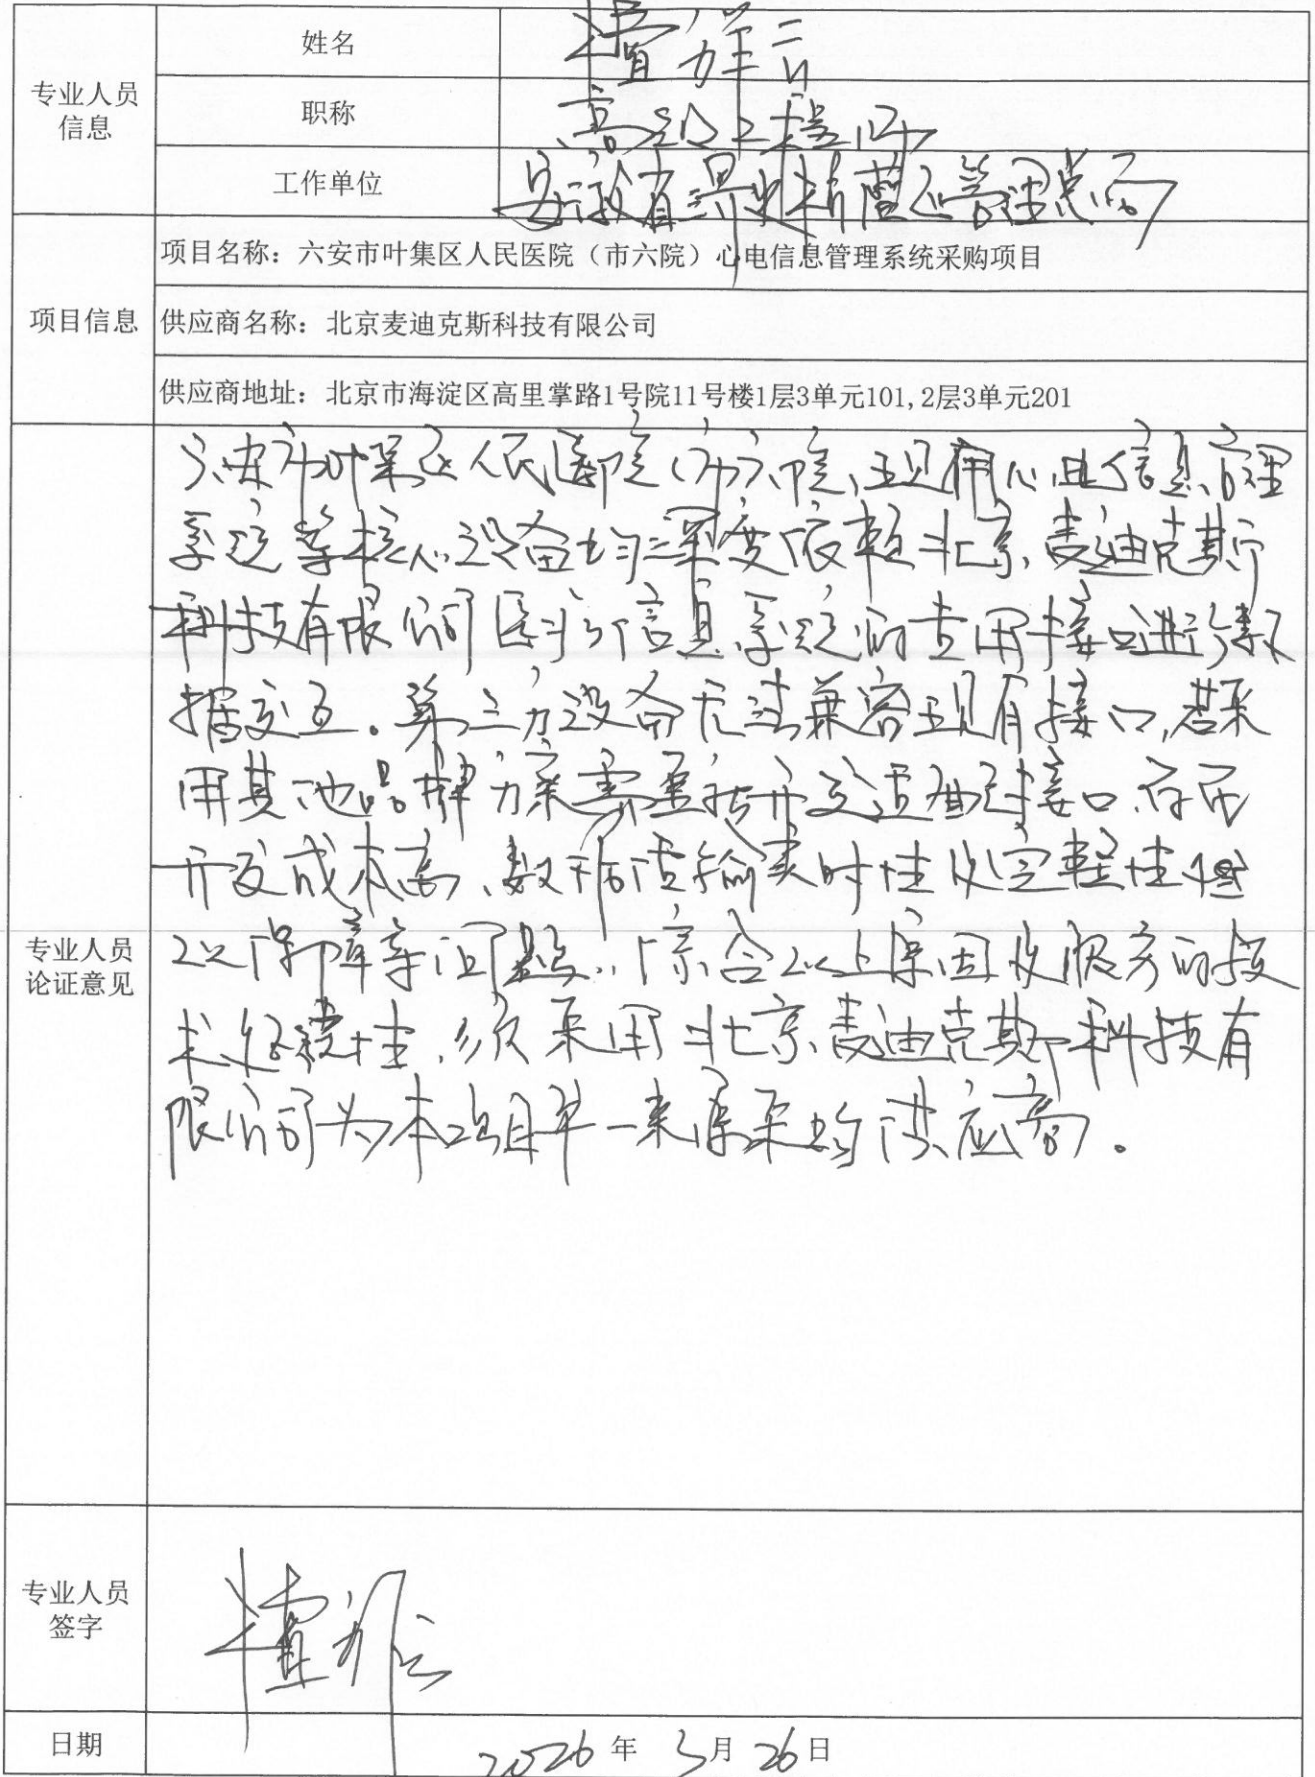 专业人员
信息
姓名
职称
高级工程师
工作单位
安徽省淠史杭灌区管理总局
项目信息
项目名称：六安市叶集区人民医院（市六院）心电信息管理系统采购项目
供应商名称：北京麦迪克斯科技有限公司
供应商地址：北京市海淀区高里掌路1号院11号楼1层3单元101,2层3单元201
专业人员
论证意见
六安市叶集区人民医院（市六院）现用心电信息管理
系统等核心设备均深度依赖北京麦迪克斯
科技有限公司医疗信息系统的专用接口进行数
据交互。第三方设备无法兼容现有接口,若采
用其他品牌方案需重新开发适配接口存在
开发成本高、数据传输实时性及完整性难
以保障等问题。综合以上原因及服务的技
术延续性,须采用北京麦迪克斯科技有
限公司为本项目单一来源采购供应商。
专业人员
签字
日期
2026年3月26日